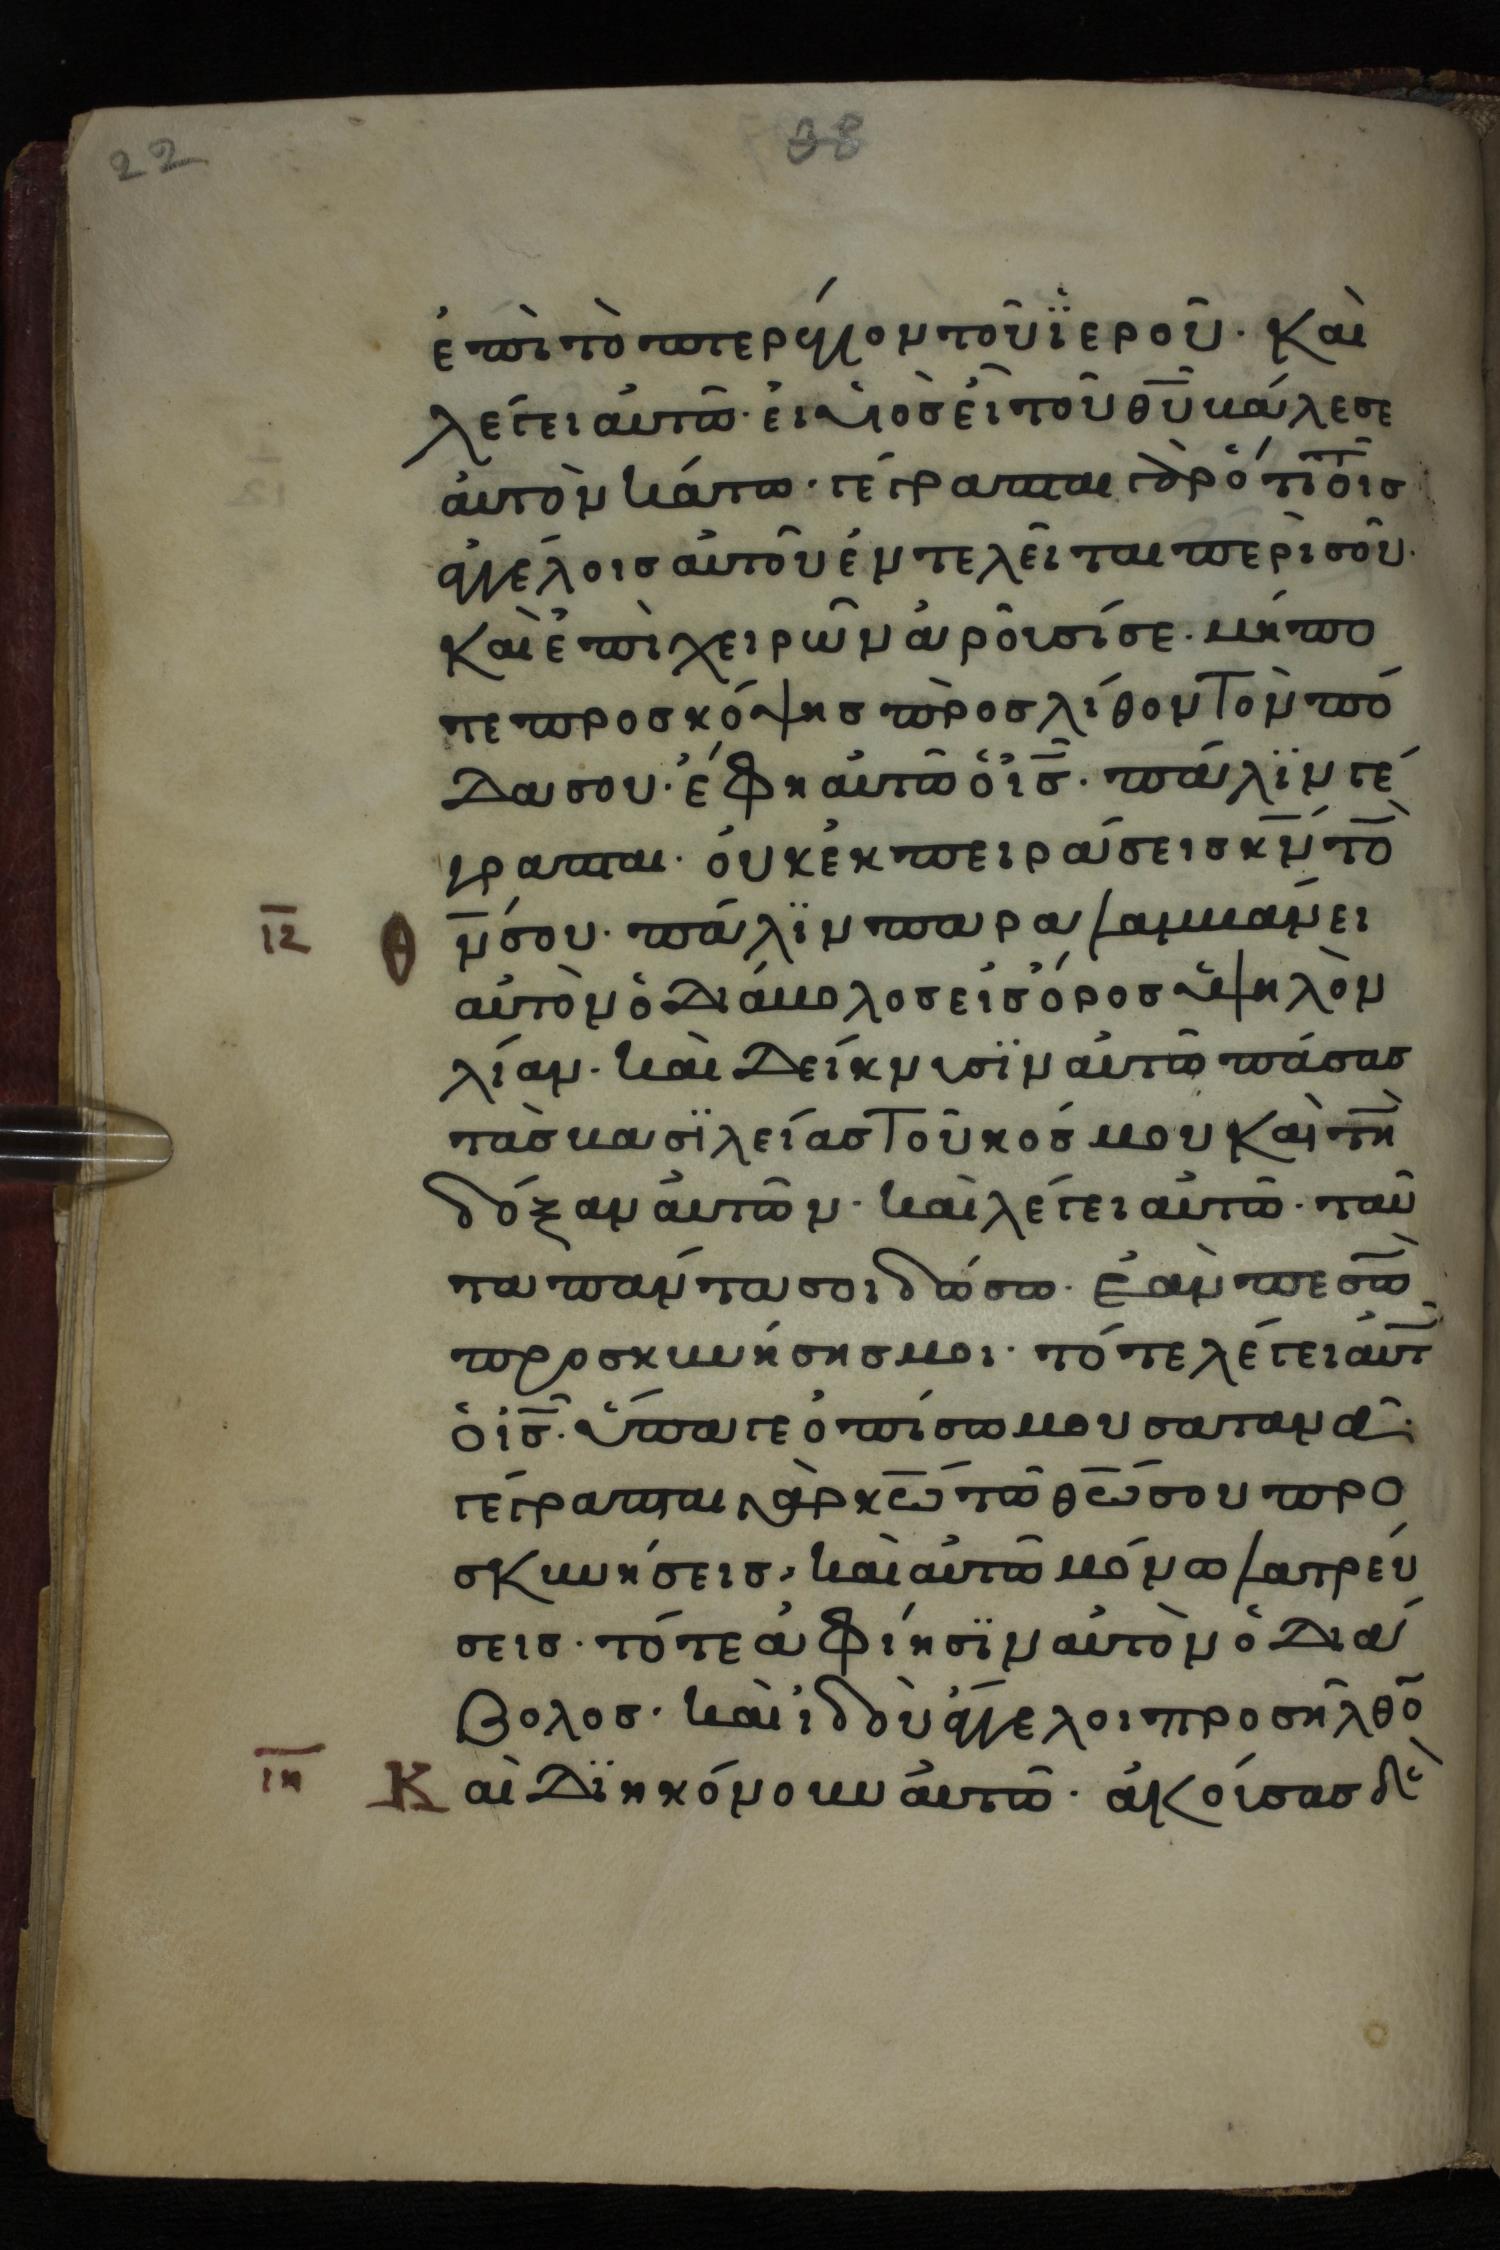 22
38
ἐπὶ τὸ πτερύγιον τοῦ ἱεροῦ· καὶ
λέγει αὐτῶ· εἰ υἱὸς εἶ τοῦ θῡ βάλε σε
αὐτὸν κάτω· γέγραπται γὰρ ὅτι τοῖς
ἀγγέλοις αὐτοῦ ἐντελεῖται περὶ σοῦ·
καὶ ἐπὶ χειρῶν ἀροῦσί σε· μήπο
τε προσκόψης πρὸς λίθον τὸν πό
δα σου· ἔφη αὐτῶ ὁ ις̄· πάλιν γέ
γραπται· οὐκ ἐκπειράσεις κν̄ τὸ
ν̄ σου· πάλιν παραλαμβάνει
ιζ
αὐτὸν ὁ διάβολος εἰς ὄρος ὑψηλὸν
λίαν· καὶ δείκνυσιν αὐτῶ πάσας
τὰς βασιλείας τοῦ κόσμου καὶ τὴ
δόξαν αὐτῶν· καὶ λέγει αὐτῶ· ταῦ
τα πάντα σοι δώσω· ἐὰν πεσὼ
προσκυνήσης μοι· τότε λέγει αὐτ
ὁ ις̄· ὕπαγε ὀπίσω μου σατανᾶ·
γέγραπται γὰρ κω̄ τῶ θω̄ σου προ
σκυνήσεις, καὶ αὐτῶ μόνω λατρεύ
σεις· τότε ἀφίησιν αὐτὸν ὁ διά
βολος· καὶ ἰδοὺ ἄγγελοι προσῆλθο
ιη Καὶ διηκόνουν αὐτῶ· ἀκούσας δὲ